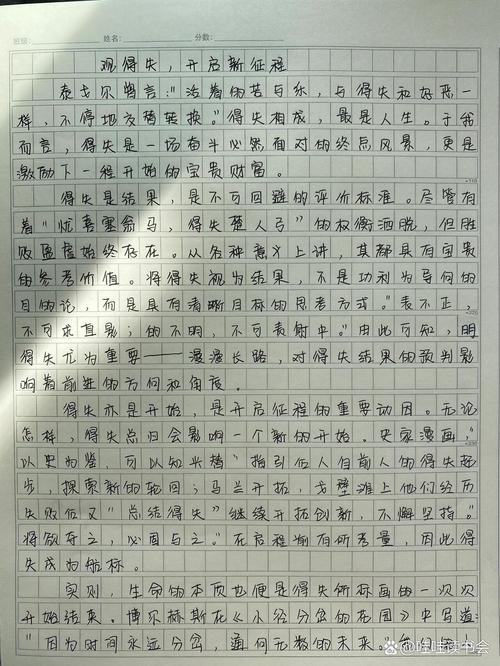 班级: 姓名: 分数:
观得失，开启新征程
泰戈尔曾言："活着的苦与乐，与得失和好恶一
样，不停地交替转换。"得失相成，最是人生。于我
而言，得失是一场奋斗必然面对的终点风景，更是
激励下一程开始的宝贵财富。
得失是结果，是不可回避的评价标准。尽管有
着"忧喜塞翁马，得失楚人弓"的权衡洒脱，但胜
败盈虚始终存在。从各种意义上讲，其都具有宝贵
的参考价值。将得失视为结果，不是功利为导向的
目的论，而是具有清晰目标的思考方式。"表不正，
不可求直影；的不明，不可责射中。"由此可知，明
得失尤为重要——漫漫长路，对得失结果的预判影
响着前进的方向和角度。
得失亦是开始，是开启征程的重要动因。无论
怎样，得失总归会影响一个新的开始。史家漫画，"
以史为鉴，可以知兴替"指引后人自前人的得失起
步，探索新的轮回；马兰开拓，戈壁滩上他们经历
失败后又"总结得失"继续开拓创新，不懈坚指。"
将欲夺之，必固与之。"在启程前有所考量，因此得
失成为航标。
实则，生命的本质也便是得失所标画的一次次
开始结束。博尔赫斯在《小径分岔的花园》中写道：
"因为时间永远分岔，通向无数的未来。
@哇哇读书会